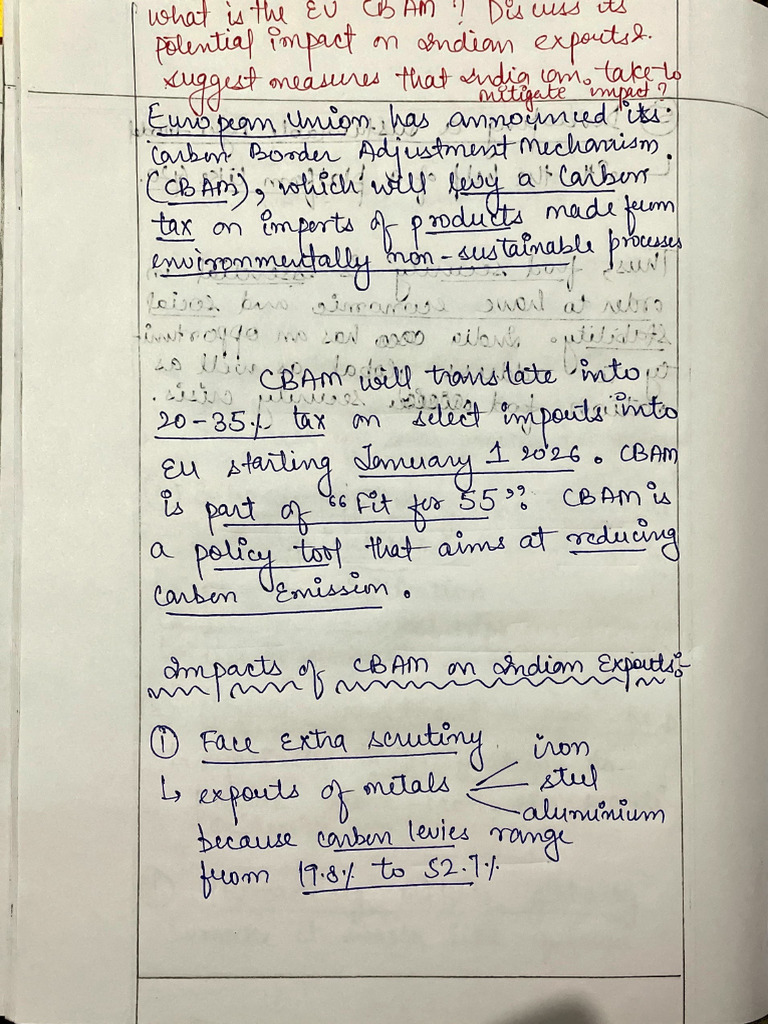 what is the EU CBAM? Discuss its
potential impact on Indian exports &
suggest measures that India can take to
mitigate impact?
European Union has announced its
Carbon Border Adjustment Mechanism
(CBAM), which will levy a Carbon
tax on imports of products made from
environmentally non-sustainable processes
CBAM will translate into
20-35% tax on select imports into
EU starting January 1 2026. CBAM
is part of "Fit for 55". CBAM is
a policy tool that aims at reducing
Carbon Emission.
Impacts of CBAM on Indian Exports:-
① Face Extra scrutiny
↳ exports of metals
iron
steel
aluminium
because carbon levies range
from 19.8% to 52.7%